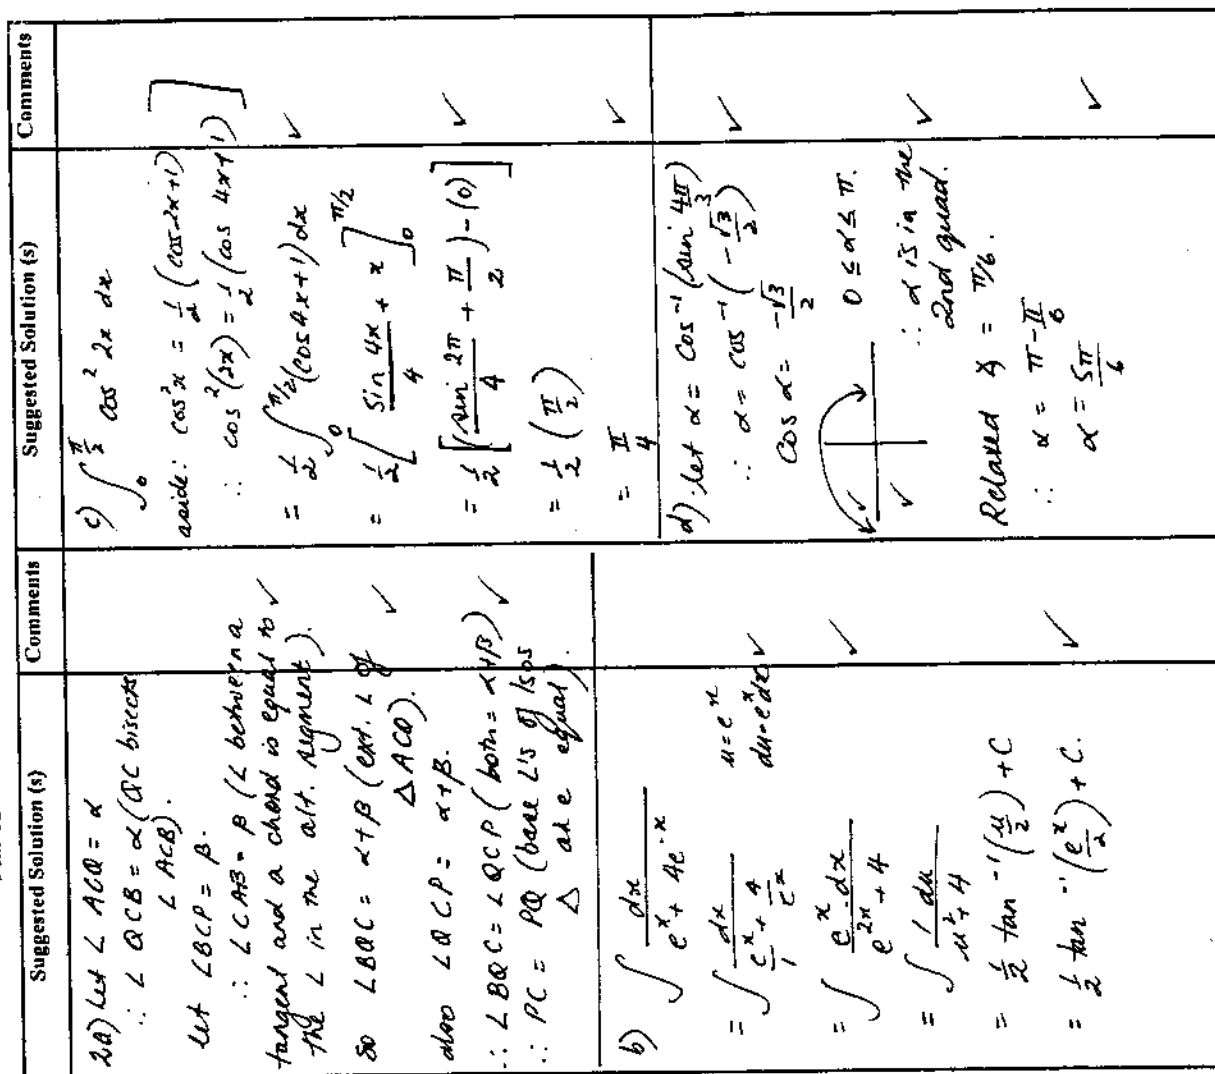 Suggested Solution (s)
Comments
2a) Let ∠ ACQ = α
∴ ∠ QCB = α (QC bisects
∠ ACB).
Let ∠BCP = β.
∴ ∠CAB = β (∠ between a
tangent and a chord is equal to ✓
the ∠ in the alt. segment).
So ∠BQC = α + β (ext. ∠ of ✓
△ ACQ).
also ∠QCP = α+β.
∴ ∠BQC = ∠QCP (both = α+β) ✓
∴ PC = PQ (base ∠'s of isos
△ are equal).
b) ∫ dx / (e^x + 4e^-x)
u = e^x
= ∫ dx / (e^x/1 + 4/e^x)
du = e^x dx ✓
= ∫ e^x . dx / (e^2x + 4) ✓
= ∫ du / (u² + 4)
= 1/2 tan⁻¹ (u/2) + C
= 1/2 tan⁻¹ (e^x/2) + C. ✓
Suggested Solution (s)
Comments
c) ∫_0^(π/2) cos² 2x dx
aside: cos²x = 1/2 (cos 2x + 1)
∴ cos²(2x) = 1/2 (cos 4x + 1) ]
= 1/2 ∫_0^(π/2) (cos 4x + 1) dx ✓
= 1/2 [ sin 4x / 4 + x ]_0^(π/2)
= 1/2 [ (sin 2π / 4 + π/2) - (0) ] ✓
= 1/2 (π/2)
= π/4 ✓
d) let α = cos⁻¹ (sin 4π/3)
∴ α = cos⁻¹ (-√3/2) ✓
cos α = -√3/2
0 ≤ α ≤ π.
∴ α is in the ✓
2nd quad.
Related ∡ = π/6.
∴ α = π - π/6
α = 5π/6 ✓